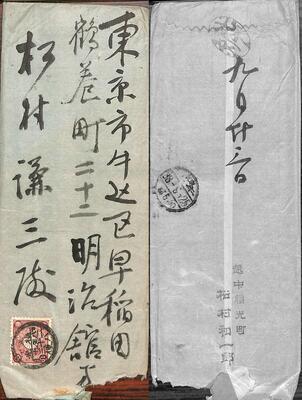 東京市牛込区早稲田
鶴巻町二十二 明治館方
松村謙三殿
九月廿六日
越中福光町
松村和一郎